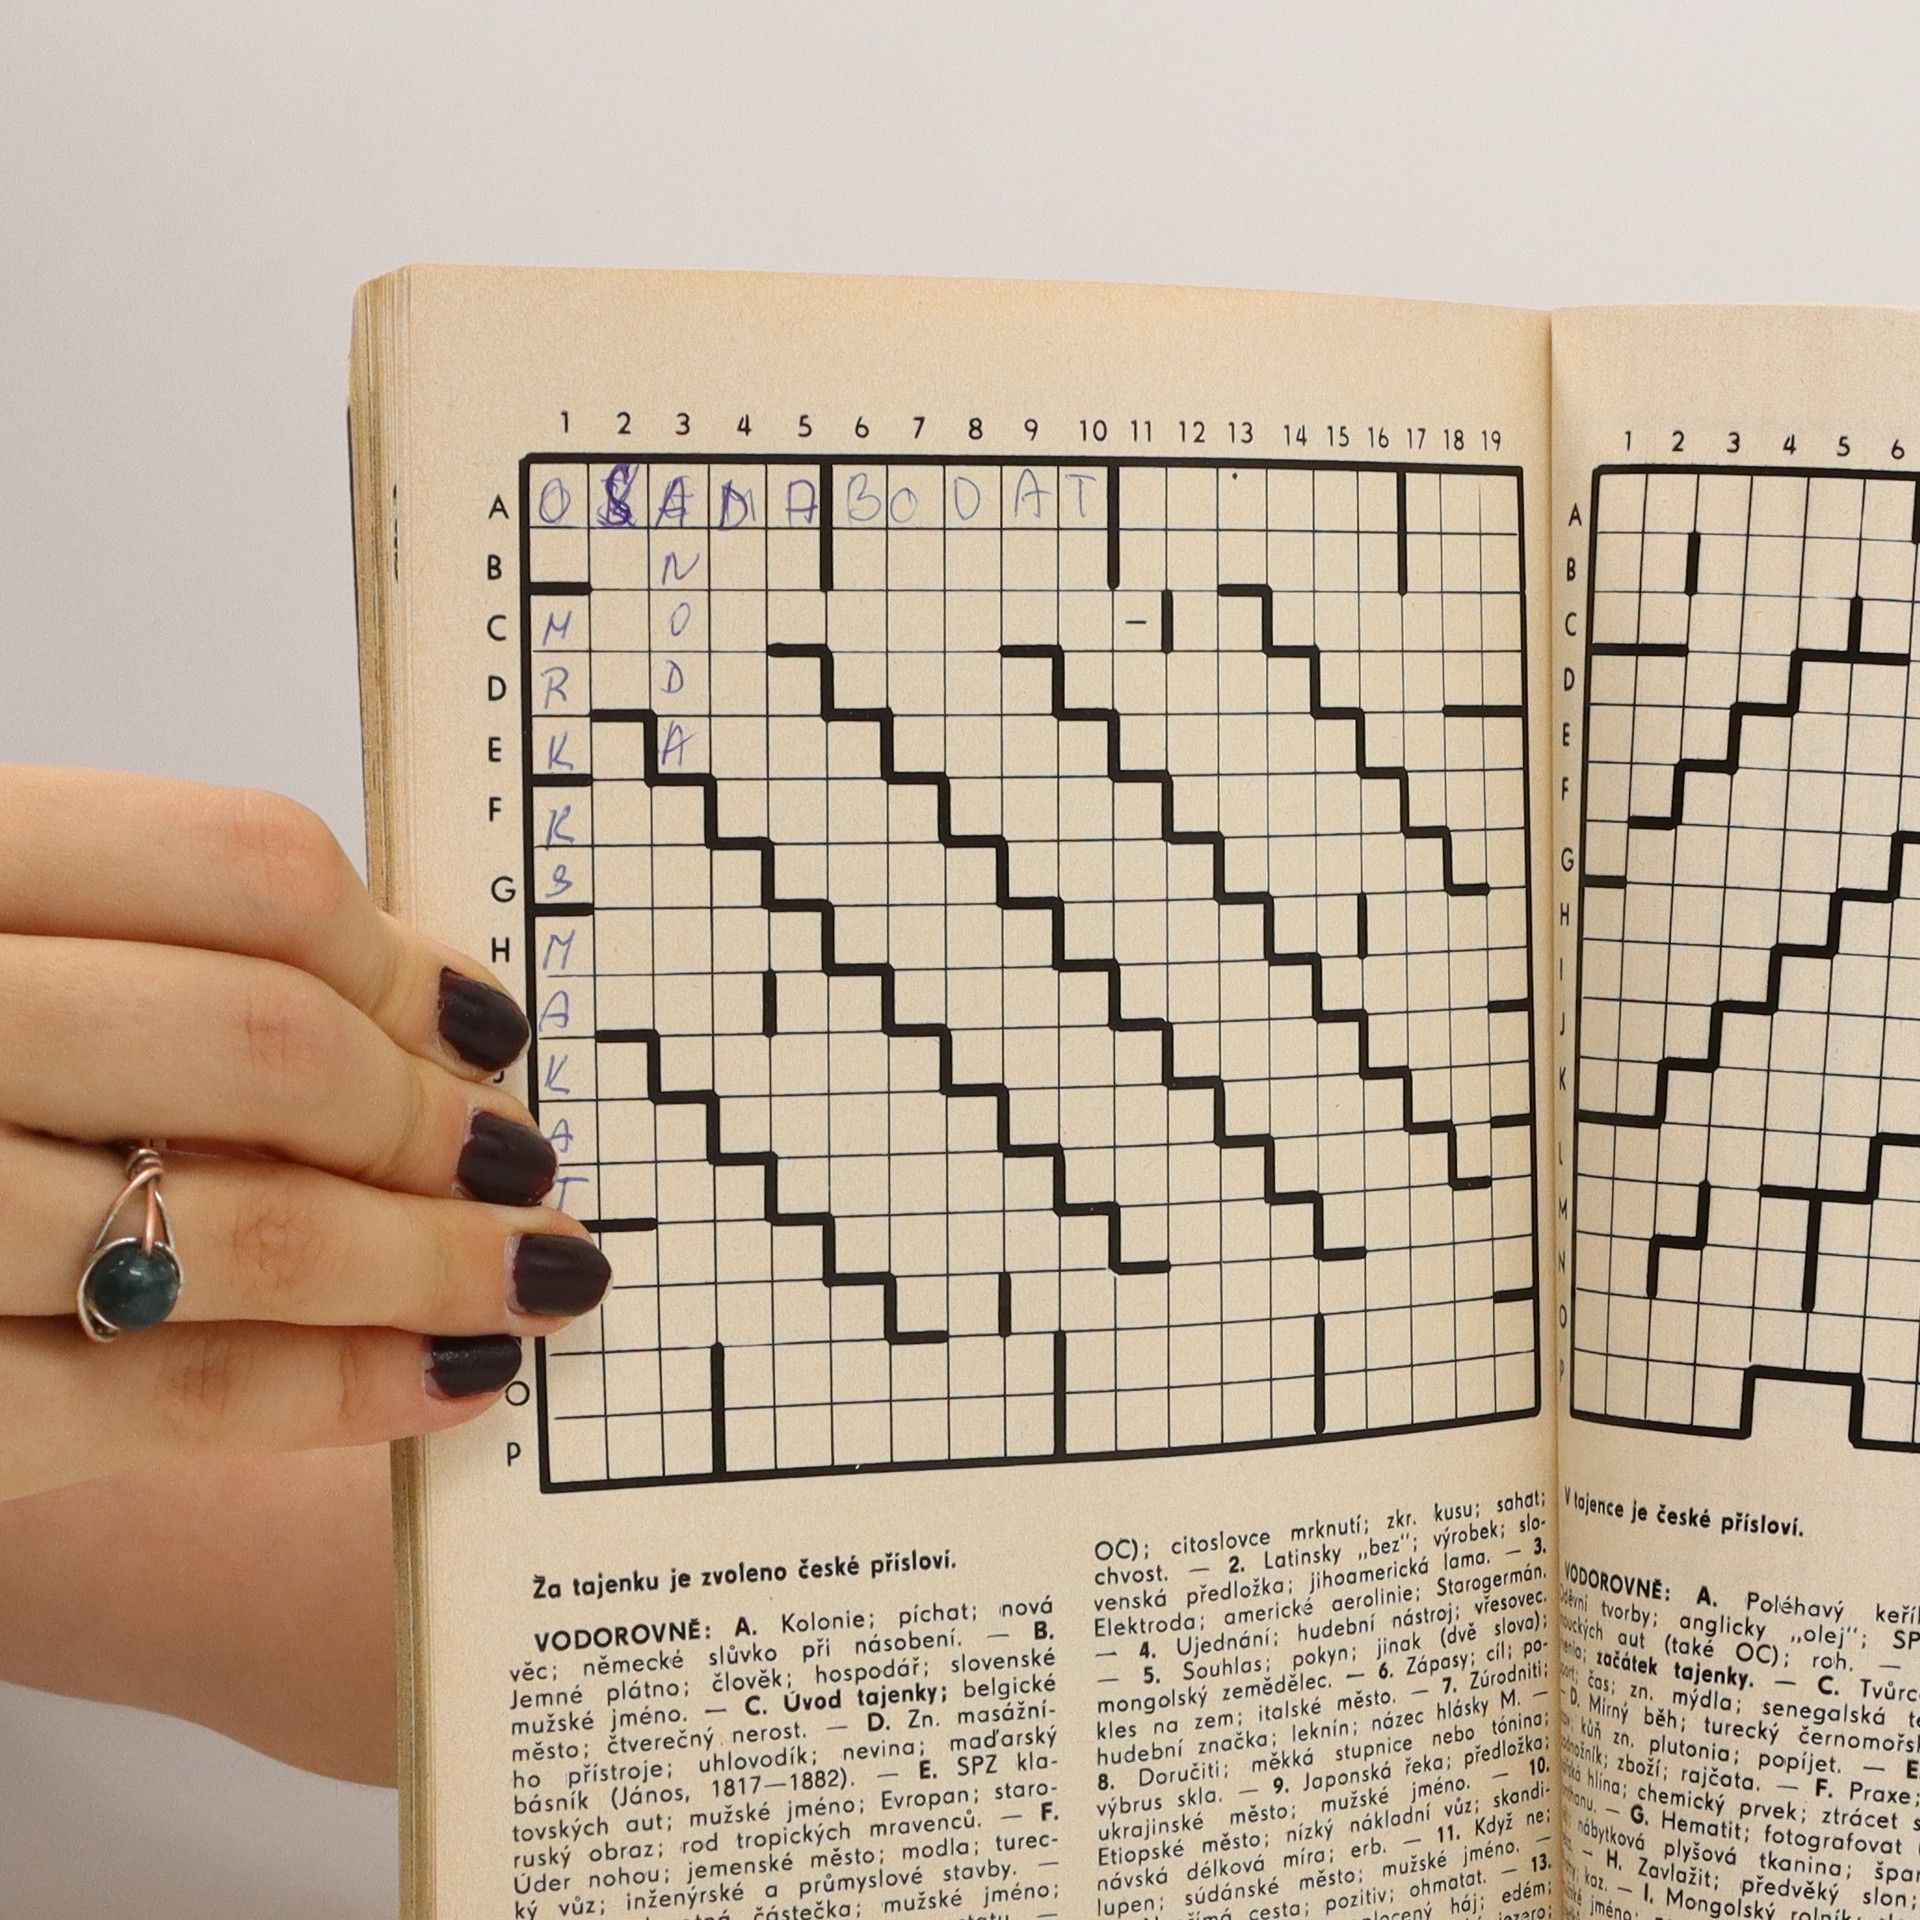 1 2 3 4 5 6 7 8 9 10 11 12 13 14 15 16 17 18 19
A O S A D A B O D A T
B N
C M O –
D R D
E K A
F K
G S
H M
A
K
A
T
O
P
Za tajenku je zvoleno české přísloví.
VODOROVNĚ: A. Kolonie; píchat; nová
věc; německé slůvko při násobení. — B.
Jemné plátno; člověk; hospodář; slovenské
mužské jméno. — C. Úvod tajenky; belgické
město; čtverečný nerost. — D. Zn. masážní-
ho přístroje; uhlovodík; nevina; maďarský
básník (János, 1817—1882). — E. SPZ kla-
tovských aut; mužské jméno; Evropan; staro-
ruský obraz; rod tropických mravenců. — F.
Úder nohou; jemenské město; modla; turec-
ký vůz; inženýrské a průmyslové stavby. —
částečka; mužské jméno;
OC); citoslovce mrknutí; zkr. kusu; sahat;
chvost. — 2. Latinsky „bez“; výrobek; slo-
venská předložka; jihoamerická lama. — 3.
Elektroda; americké aerolinie; Starogermán.
— 4. Ujednání; hudební nástroj; vřesovec.
— 5. Souhlas; pokyn; jinak (dvě slova);
mongolský zemědělec. — 6. Zápasy; cíl; po-
kles na zem; italské město. — 7. Zúrodniti;
hudební značka; leknín; název hlásky M. —
8. Doručiti; měkká stupnice nebo tónina;
výbrus skla. — 9. Japonská řeka; předložka;
ukrajinské město; mužské jméno. — 10.
Etiopské město; nízký nákladní vůz; skandi-
návská délková míra; erb. — 11. Když ne;
lupen; súdánské město; mužské jméno. —
cesta; pozitiv; ohmatat. — 13.
háj; edém;
1 2 3 4 5 6
A
B
C
D
E
F
G
H
I
J
K
L
M
N
O
P
V tajence je české přísloví.
VODOROVNĚ: A. Poléhavý
tvorby; anglicky „olej“;
aut (také OC); roh. —
začátek tajenky. — C.
čas; zn. mýdla; senegalská
D. Mírný běh; turecký
kůň zn. plutonia; popíjet. —
zboží; rajčata. — F. Praxe;
hlína; chemický prvek; ztrácet
— G. Hematit; fotografovat
nábytková plyšová tkanina;
— H. Zavlažit; předvěký slon;
— I. Mongolský